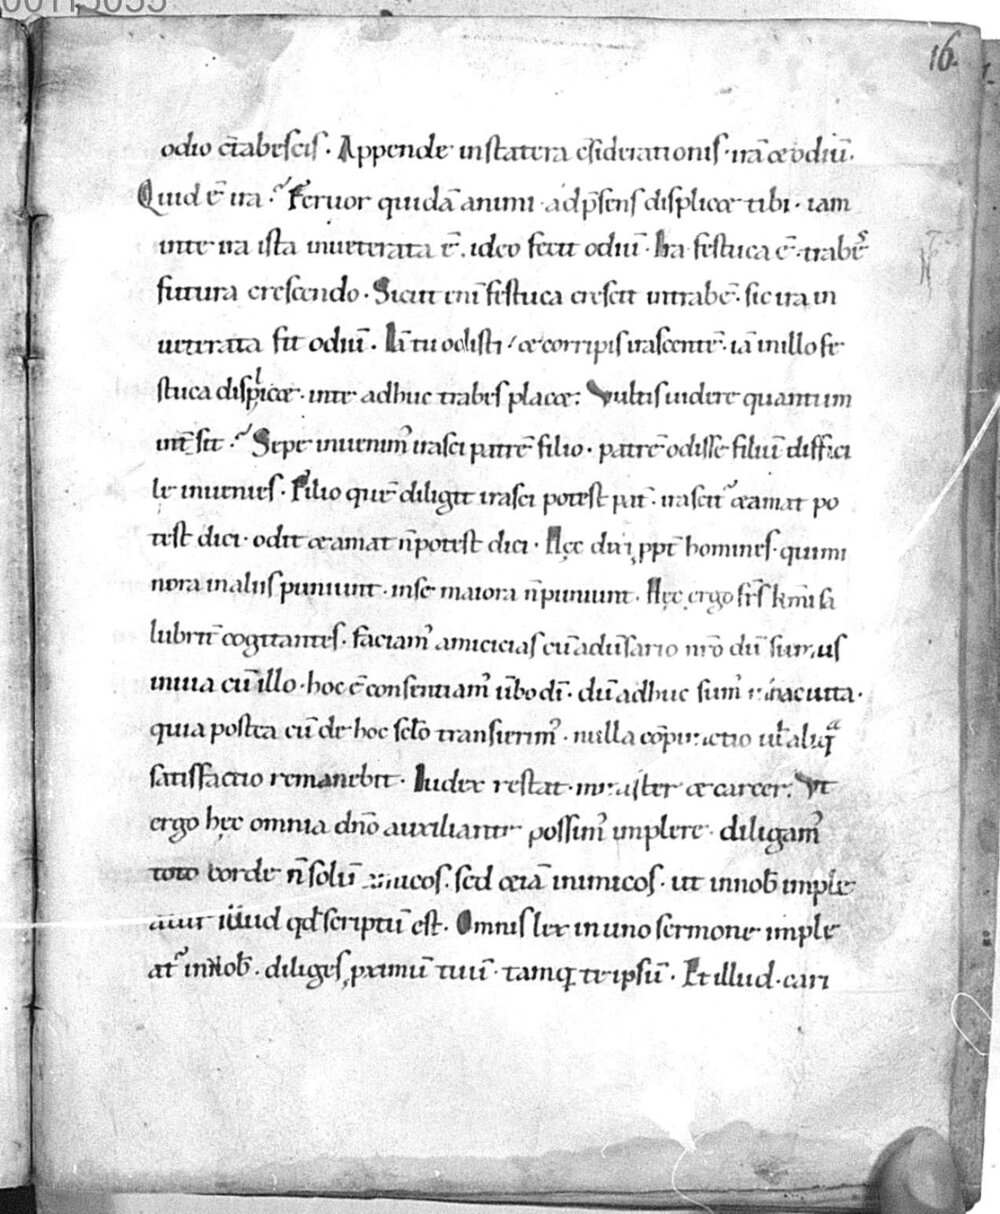 00113055
16.
odio c̄tabescis. Appende instatera c̄siderationis. irā & odiū.
Quid ē ira? Feruor quidā animi. ad p̄sens displic& tibi. iam
inte ira ista inueterata ē. ideo fecit odiū. Ira festuca ē. trabēs
futura crescendo. Sicut eni festuca crescit intrabē. sic ira in
ueterata fit odiū. Iā tu odisti / & corripis irascentē. iā inillo fe
stuca displic&. inte adhuc trabes plac&. Vultis uidere quantum
int̄sit? Sepe inuenimꝰ irasci patrē filio. patrē odisse filiū diffici
le inuenies. Filio quē diligit irasci potest pat̄. irascit᷑ & amat po
test dici. odit & amat n̄ potest dici. Hęc dixi ꝓpt̄ homines. qui mi
nora inaliis puniunt. inse maiora n̄ puniunt. Hęc ergo fr̄s k̄mi sa
lubrit̄ cogitantes. faciamꝰ amicicias cū aduersario nr̄o dū sumus
inuia cū illo. hoc ē consentiamꝰ ūbo dī. dū adhuc sumꝰ inhac uita.
quia postea cū de hoc sclo transierimꝰ. nulla cōpunctio uł aliqᵃ
satisfactio remanebit. Iudex restat. minister & carcer. Vt
ergo hęc omnia dn̄o auxiliante possimꝰ implere. diligamꝰ
toto corde n̄ solū amicos. sed &iā inimicos. ut innob̄ imple
atur illud qd̄ scriptū est. Omnis lex inuno sermone imple
at᷑ innob̄. diliges ꝓximū tuū. tamq̄ te ipsū. Et illud. cari